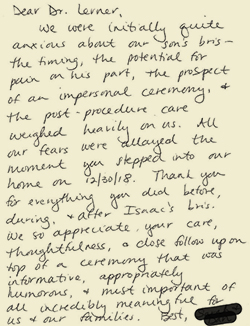 Dear Dr. Lerner,
We were initially quite
anxious about our son's bris —
the timing, the potential for
pain on his part, the prospect
of an impersonal ceremony, &
the post-procedure care
weighed heavily on us. All
our fears were allayed the
moment you stepped into our
home on 12/30/18. Thank you
for everything you did before,
during, & after Isaac's bris.
We so appreciate your care,
thoughtfulness, & close follow up on
top of a ceremony that was
informative, appropriately
humorous, & most important of
all incredibly meaningful for
us & our families. Best,